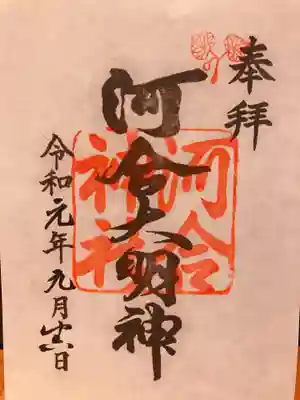 奉拝
河合大明神
河合
神社
令和元年九月吉日